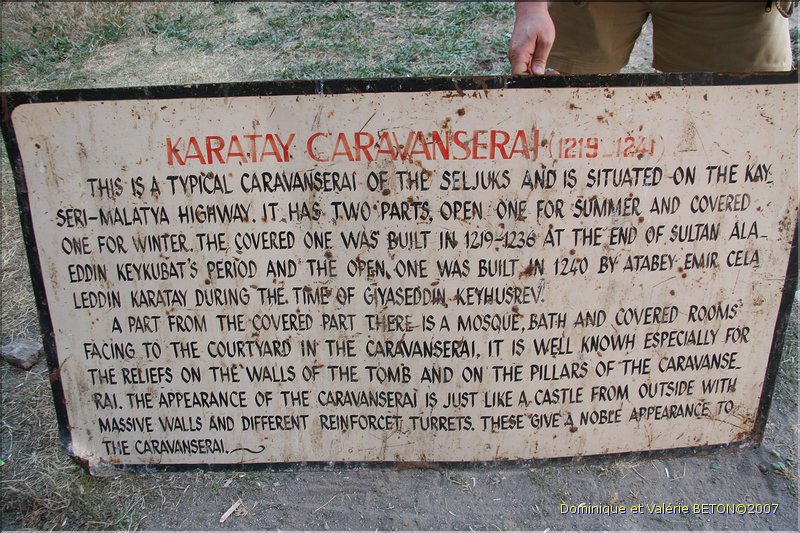 KARATAY CARAVANSERAI (1219-1241)
THIS IS A TYPICAL CARAVANSERAI OF THE SELJUKS AND IS SITUATED ON THE KAY
SERI-MALATYA HIGHWAY. IT HAS TWO PARTS, OPEN ONE FOR SUMMER AND COVERED
ONE FOR WINTER. THE COVERED ONE WAS BUILT IN 1219-1236 AT THE END OF SULTAN ALA_
EDDIN KEYKUBAT'S PERIOD AND THE OPEN ONE WAS BUILT IN 1240 BY ATABEY EMIR CELA
LEDDIN KARATAY DURING THE TIME OF GIYASEDDIN KEYHUSREV.
A PART FROM THE COVERED PART THERE IS A MOSQUE, BATH AND COVERED ROOMS
FACING TO THE COURTYARD IN THE CARAVANSERAI. IT IS WELL KNOWH ESPECIALLY FOR
THE RELIEFS ON THE WALLS OF THE TOMB AND ON THE PILLARS OF THE CARAVANSE_
RAI. THE APPEARANCE OF THE CARAVANSERAI IS JUST LIKE A CASTLE FROM OUTSIDE WITH
MASSIVE WALLS AND DIFFERENT REINFORCET TURRETS. THESE GIVE A NOBLE APPEARANCE TO
THE CARAVANSERAI.
Dominique et Valérie BETON©2007